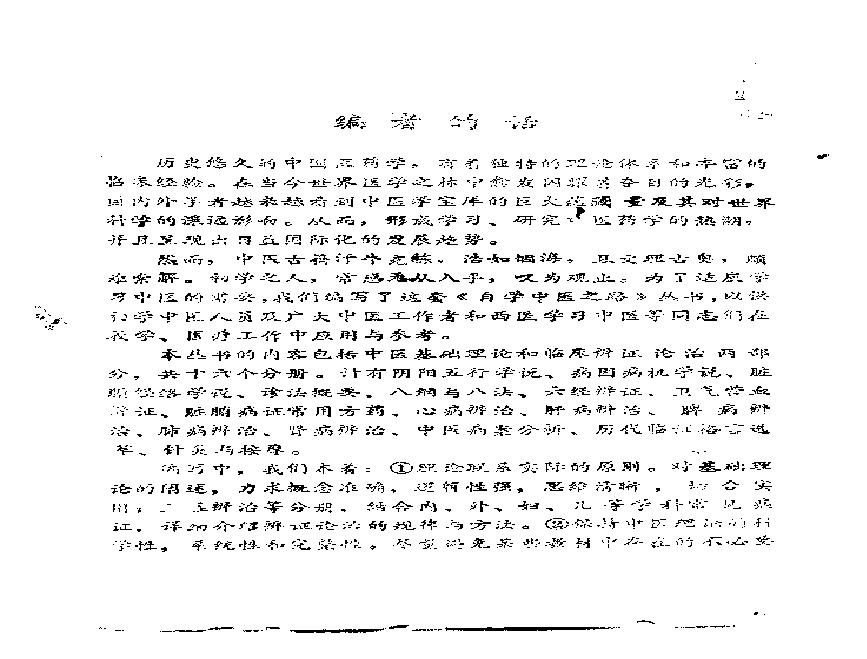 编者的话
历史悠久的中国医药学，有着独特的理论体系和丰富的
临床经验。在当今世界医学之林中愈发闪耀着夺目的光彩。
国内外学者越来越看到中医学宝库的巨大蕴藏量及其对世界
科学的深远影响。从而，形成学习、研究中医药学的热潮，
并且呈现出日益国际化的发展趋势。
然而，中医古籍汗牛充栋、浩如烟海，且文理古奥，颇
难索解。初学之人，常感难从入手，叹为观止。为了适应学
习中医的需要，我们编写了这套《自学中医之路》丛书，以供
初学中医人员及广大中医工作者和西医学习中医等同志们在
教学、医疗工作中应用与参考。
本丛书的内容包括中医基础理论和临床辨证论治两部
分，共十六个分册。计有阴阳五行学说、病因病机学说、脏
腑经络学说、诊法概要、八纲与八法、六经辨证、卫气营血
辨证、脏腑病证常用方药、心病辨治、肝病辨治、脾病辨
治、肺病辨治、肾病辨治、中医病案分析、历代临证格言选
萃、针灸与按摩。
编写中，我们本着：①理论联系实际的原则。对基础理
论的阐述，力求概念准确，逻辑性强，思绪清晰，结合实
用；辨治等分册，结合内、外、妇、儿等学科常见病
证，详细介绍辨证论治的规律与方法。②保持中医理论的科
学性，系统性和完整性。尽量避免某些教材中存在的不必要